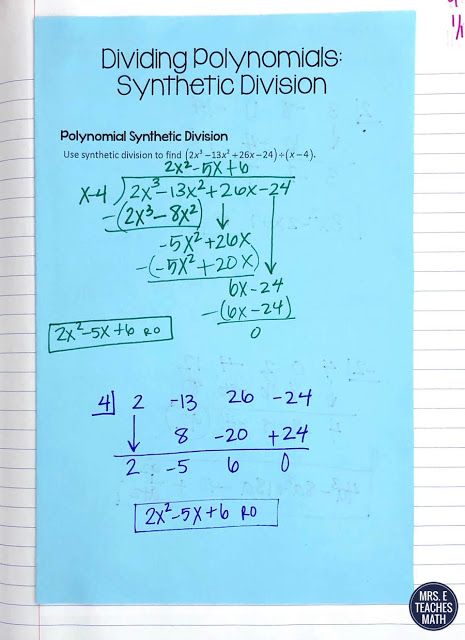 Dividing Polynomials:
Synthetic Division
Polynomial Synthetic Division
Use synthetic division to find (2x³ −13x² + 26x − 24) ÷ (x − 4).
2x²-5x+6
x-4 ) 2x³-13x²+26x-24
-(2x³-8x²)
-5x²+26x
-(-5x²+20x)
6x-24
-(6x-24)
0
2x²-5x+6 R0
4 2 -13 26 -24
8 -20 +24
2 -5 6 0
2x²-5x+6 R0
MRS. E
TEACHES
MATH